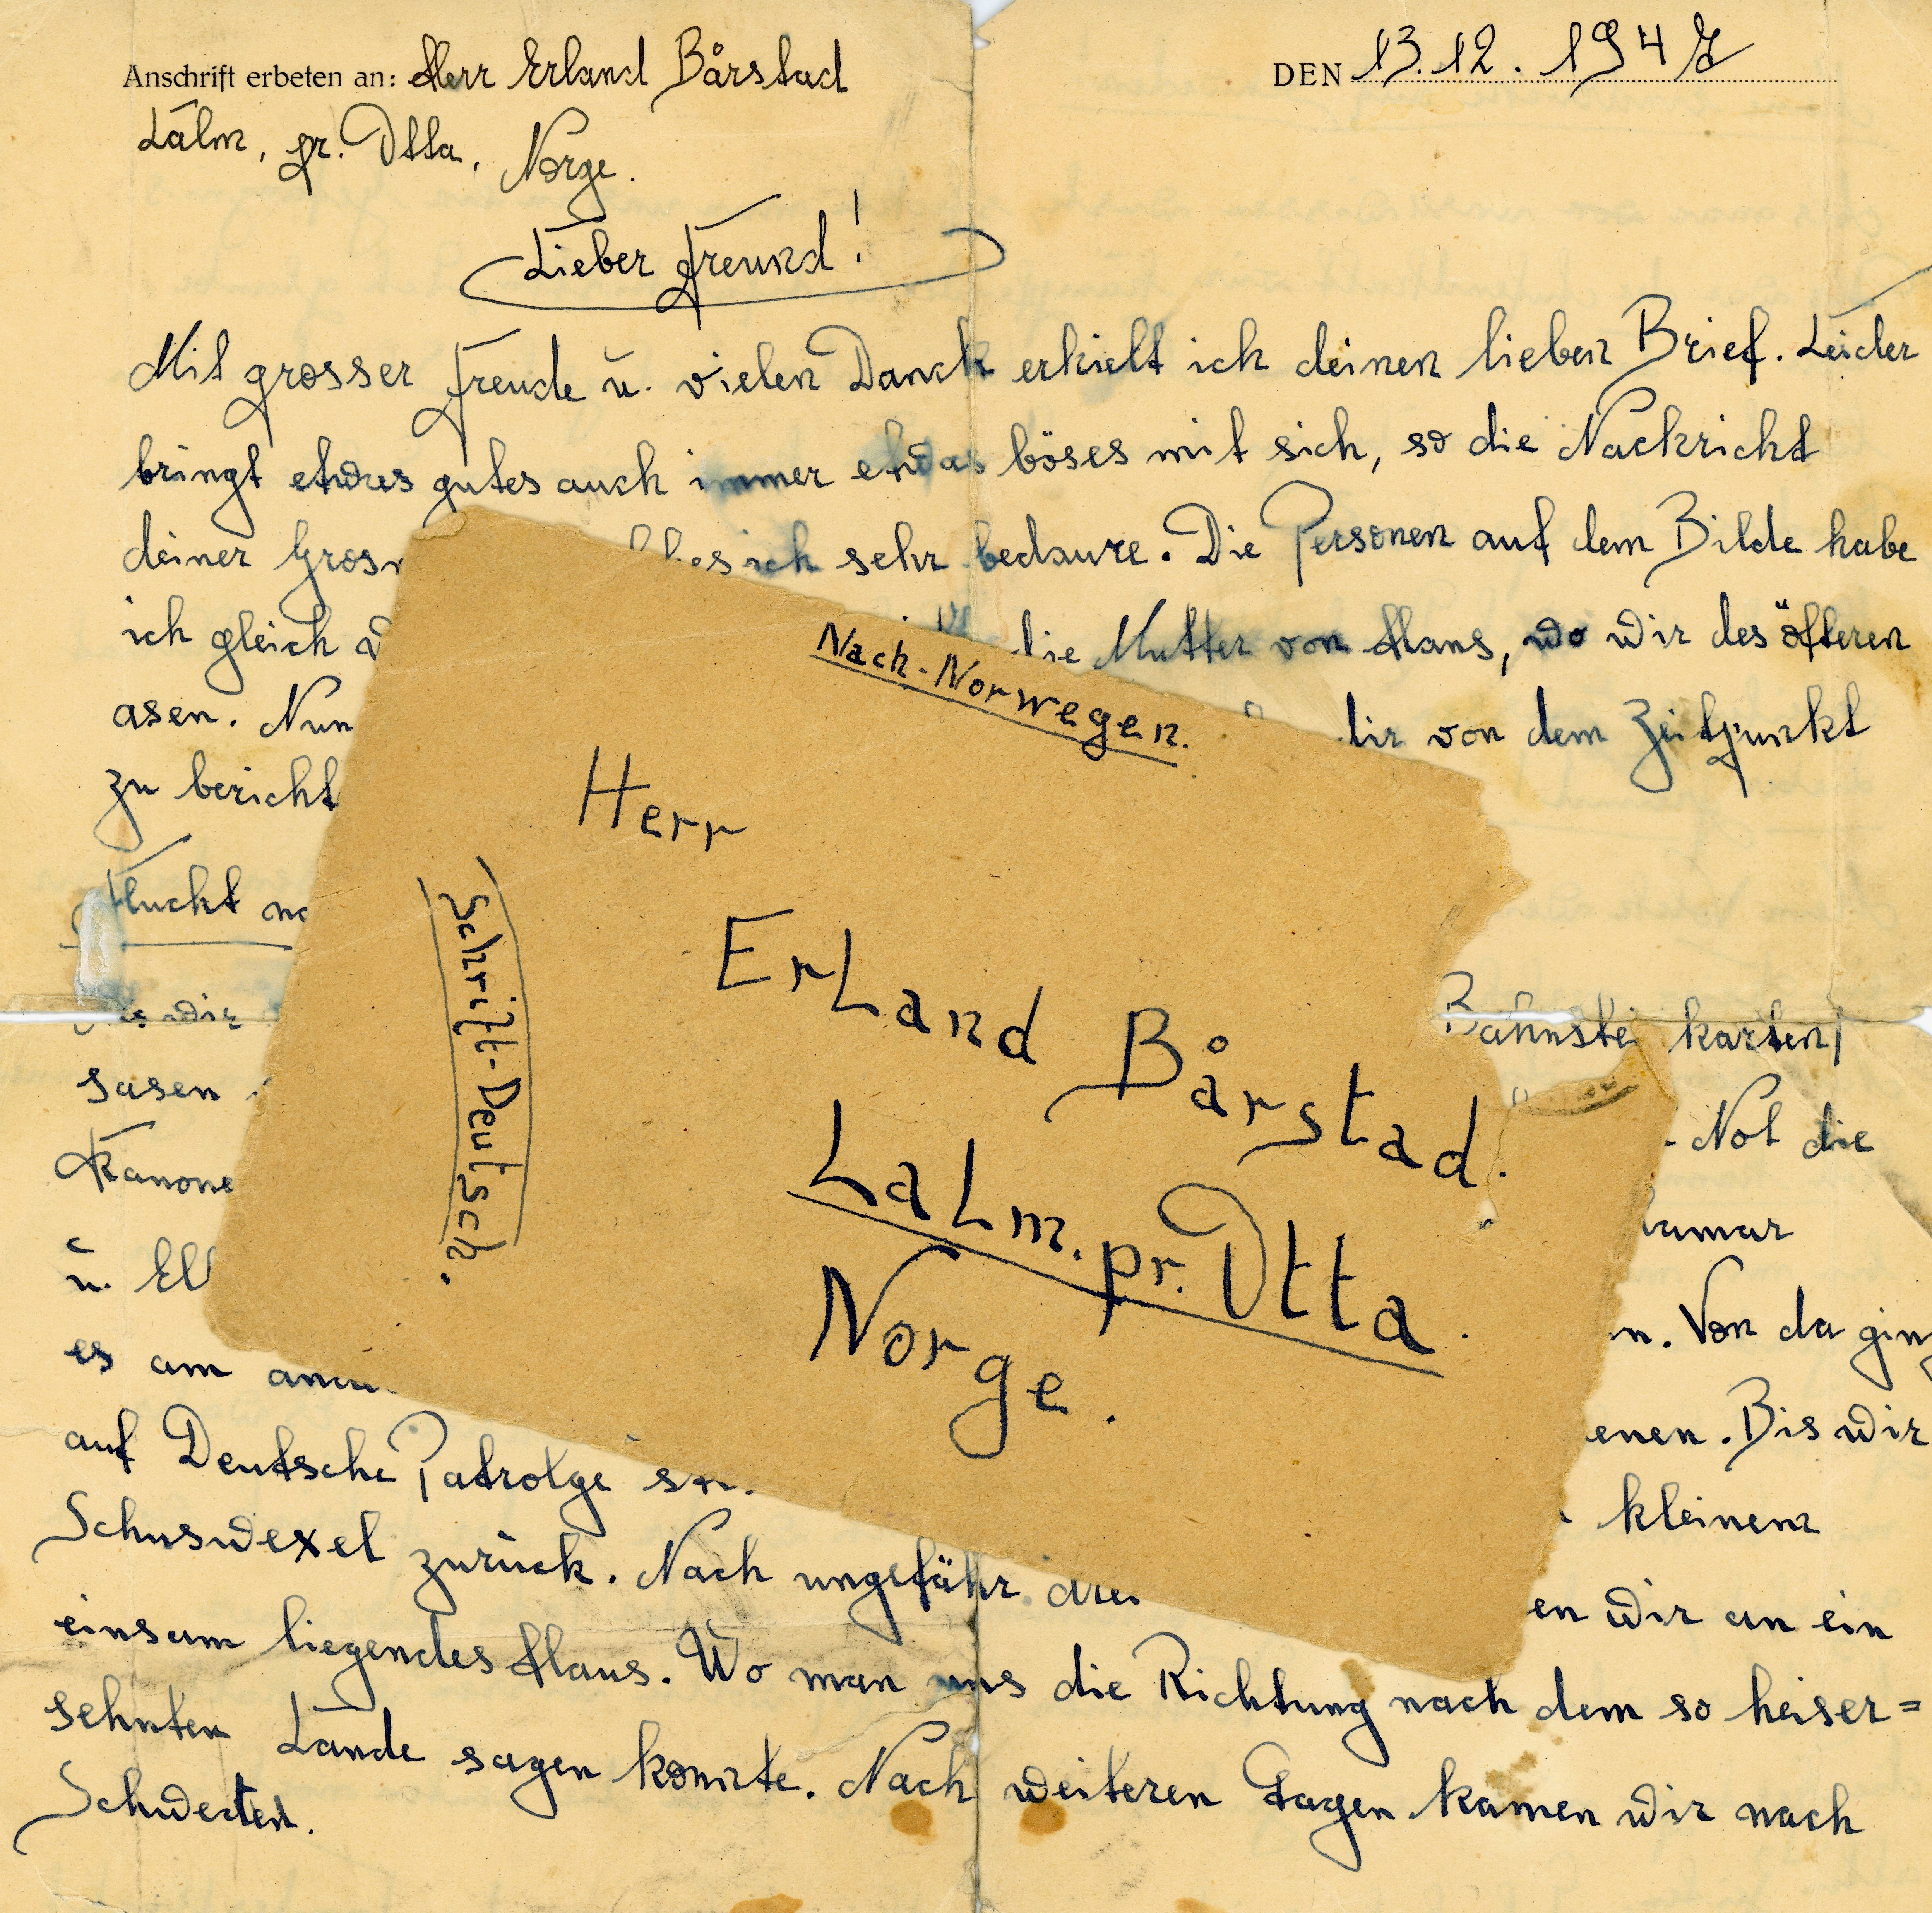 Anschrift erbeten an: Herr Erland Bårstad
DEN 13.12.1947
Lalm, pr. Otta, Norge.
Lieber Freund!
Mit grosser Freude u. vielen Danck erhielt ich deinen lieben Brief. Leider
bringt etwas gutes auch immer etwas böses mit sich, so die Nachricht
deiner ich sehr bedaure. Die Personen auf dem Bilde habe
ich gleich die Mutter von Hans, wo wir des öfteren
asen. Nun dir von dem Zeitpunkt
zu bericht
Flucht
wir karten,
sasen
Kanone Not die
u.
es am n. Von da ging
auf Deutsche Patrolge enen. Bis wir
kleinem
Schuswexel zurück. Nach ungefähr drei en wir an ein
einsam liegendes Haus. Wo man uns die Richtung nach dem so heiser=
sehnten Lande sagen konnte. Nach weiteren Tagen kamen wir nach
Schweden.
Nach-Norwegen.
Herr
Erland Bårstad.
Lalm. pr. Otta.
Norge.
Schrift-Deutsch.